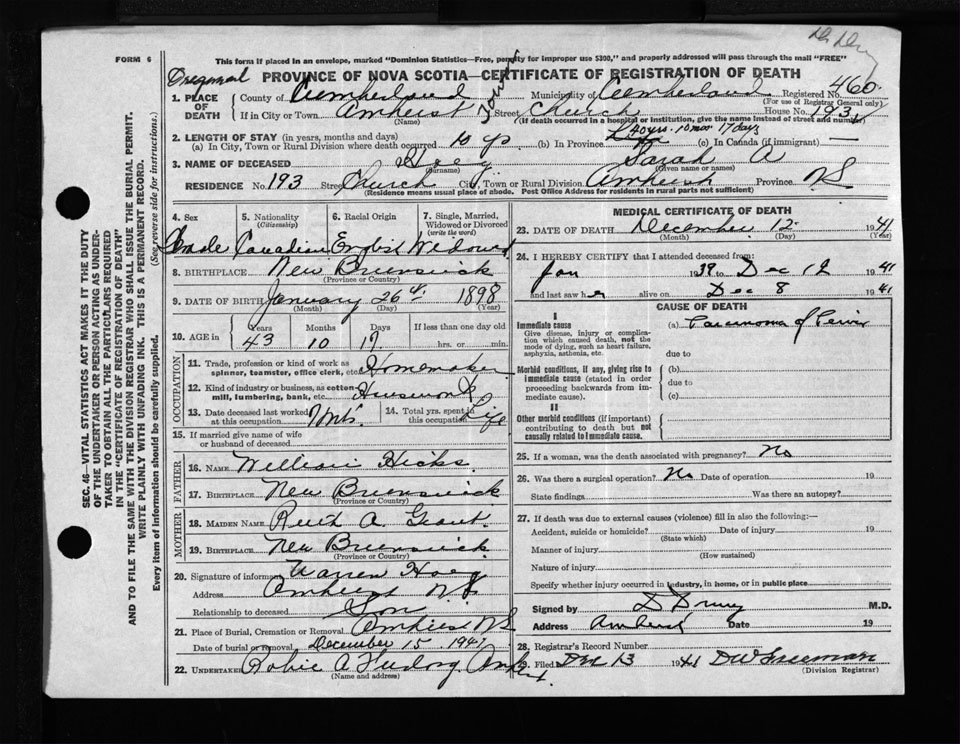 Dr Drury
FORM 6
This form if placed in an envelope, marked "Dominion Statistics—Free, penalty for improper use $300," and properly addressed will pass through the mail "FREE"
PROVINCE OF NOVA SCOTIA—CERTIFICATE OF REGISTRATION OF DEATH
1. PLACE OF DEATH
County of Cumberland Municipality of Cumberland Registered No. 460
(For use of Registrar General only)
If in City or Town Amherst Town Street Church House No. 193
(Name) (If death occurred in a hospital or institution, give the name instead of street and number)
2. LENGTH OF STAY (in years, months and days) 40 yrs. 10 mos 17 days
(a) In City, Town or Rural Division where death occurred 10 yr (b) In Province Life (c) In Canada (if immigrant) —
3. NAME OF DECEASED Hoeg Sarah A
(Surname) (Given name or names)
RESIDENCE No. 193 Street Church City, Town or Rural Division Amherst Province NS
(Residence means usual place of abode. Post Office Address for residents in rural parts not sufficient)
SEC. 46—VITAL STATISTICS ACT MAKES IT THE DUTY
OF THE UNDERTAKER OR PERSON ACTING AS UNDER-
TAKER TO OBTAIN ALL THE PARTICULARS REQUIRED
IN THE "CERTIFICATE OF REGISTRATION OF DEATH"
AND TO FILE THE SAME WITH THE DIVISION REGISTRAR WHO SHALL ISSUE THE BURIAL PERMIT.
WRITE PLAINLY WITH UNFADING INK. THIS IS A PERMANENT RECORD.
Every item of Information should be carefully supplied. (See reverse side for instructions.)
4. Sex 5. Nationality (Citizenship) 6. Racial Origin 7. Single, Married, Widowed or Divorced (write the word)
Female Canadian English Widowed
8. BIRTHPLACE New Brunswick
(Province or Country)
9. DATE OF BIRTH January 26th 1898
(Month) (Day) (Year)
10. AGE in Years Months Days If less than one day old
43 10 17 hrs. or min.
OCCUPATION
11. Trade, profession or kind of work as spinner, teamster, office clerk, etc. Homemaker
12. Kind of industry or business, as cotton-mill, lumbering, bank, etc. Housework
13. Date deceased last worked at this occupation 14. Total yrs. spent in this occupation Life
15. If married give name of wife or husband of deceased
FATHER
16. NAME William Hicks
17. BIRTHPLACE New Brunswick
(Province or Country)
MOTHER
18. MAIDEN NAME Ruth A. Grant
19. BIRTHPLACE New Brunswick
(Province or Country)
20. Signature of informant Warren Hoeg
Address Amherst N.S.
Relationship to deceased Son
21. Place of Burial, Cremation or Removal Amherst NS
Date of burial or removal December 15 1941
22. UNDERTAKER Robie A Amherst
(Name and address)
MEDICAL CERTIFICATE OF DEATH
23. DATE OF DEATH December 12 1941
(Month) (Day) (Year)
24. I HEREBY CERTIFY that I attended deceased from:
Jan 1939 to Dec 12 1941
and last saw her alive on Dec 8 1941
CAUSE OF DEATH
I
Immediate cause
Give disease, injury or complication which caused death, not the mode of dying, such as heart failure, asphyxia, asthenia, etc.
(a) Carcinoma of
due to
Morbid conditions, if any, giving rise to immediate cause (stated in order proceeding backwards from immediate cause).
(b)
due to
(c)
II
Other morbid conditions (if important) contributing to death but not causally related to immediate cause.
25. If a woman, was the death associated with pregnancy? No
26. Was there a surgical operation? No Date of operation 19
State findings Was there an autopsy?
27. If death was due to external causes (violence) fill in also the following:—
Accident, suicide or homicide? Date of injury 19
(State which)
Manner of injury
(How sustained)
Nature of injury
Specify whether injury occurred in industry, in home, or in public place
Signed by D Drury M.D.
Address Amherst Date 19
28. Registrar's Record Number
29. Filed Dec 13 1941
(Division Registrar)